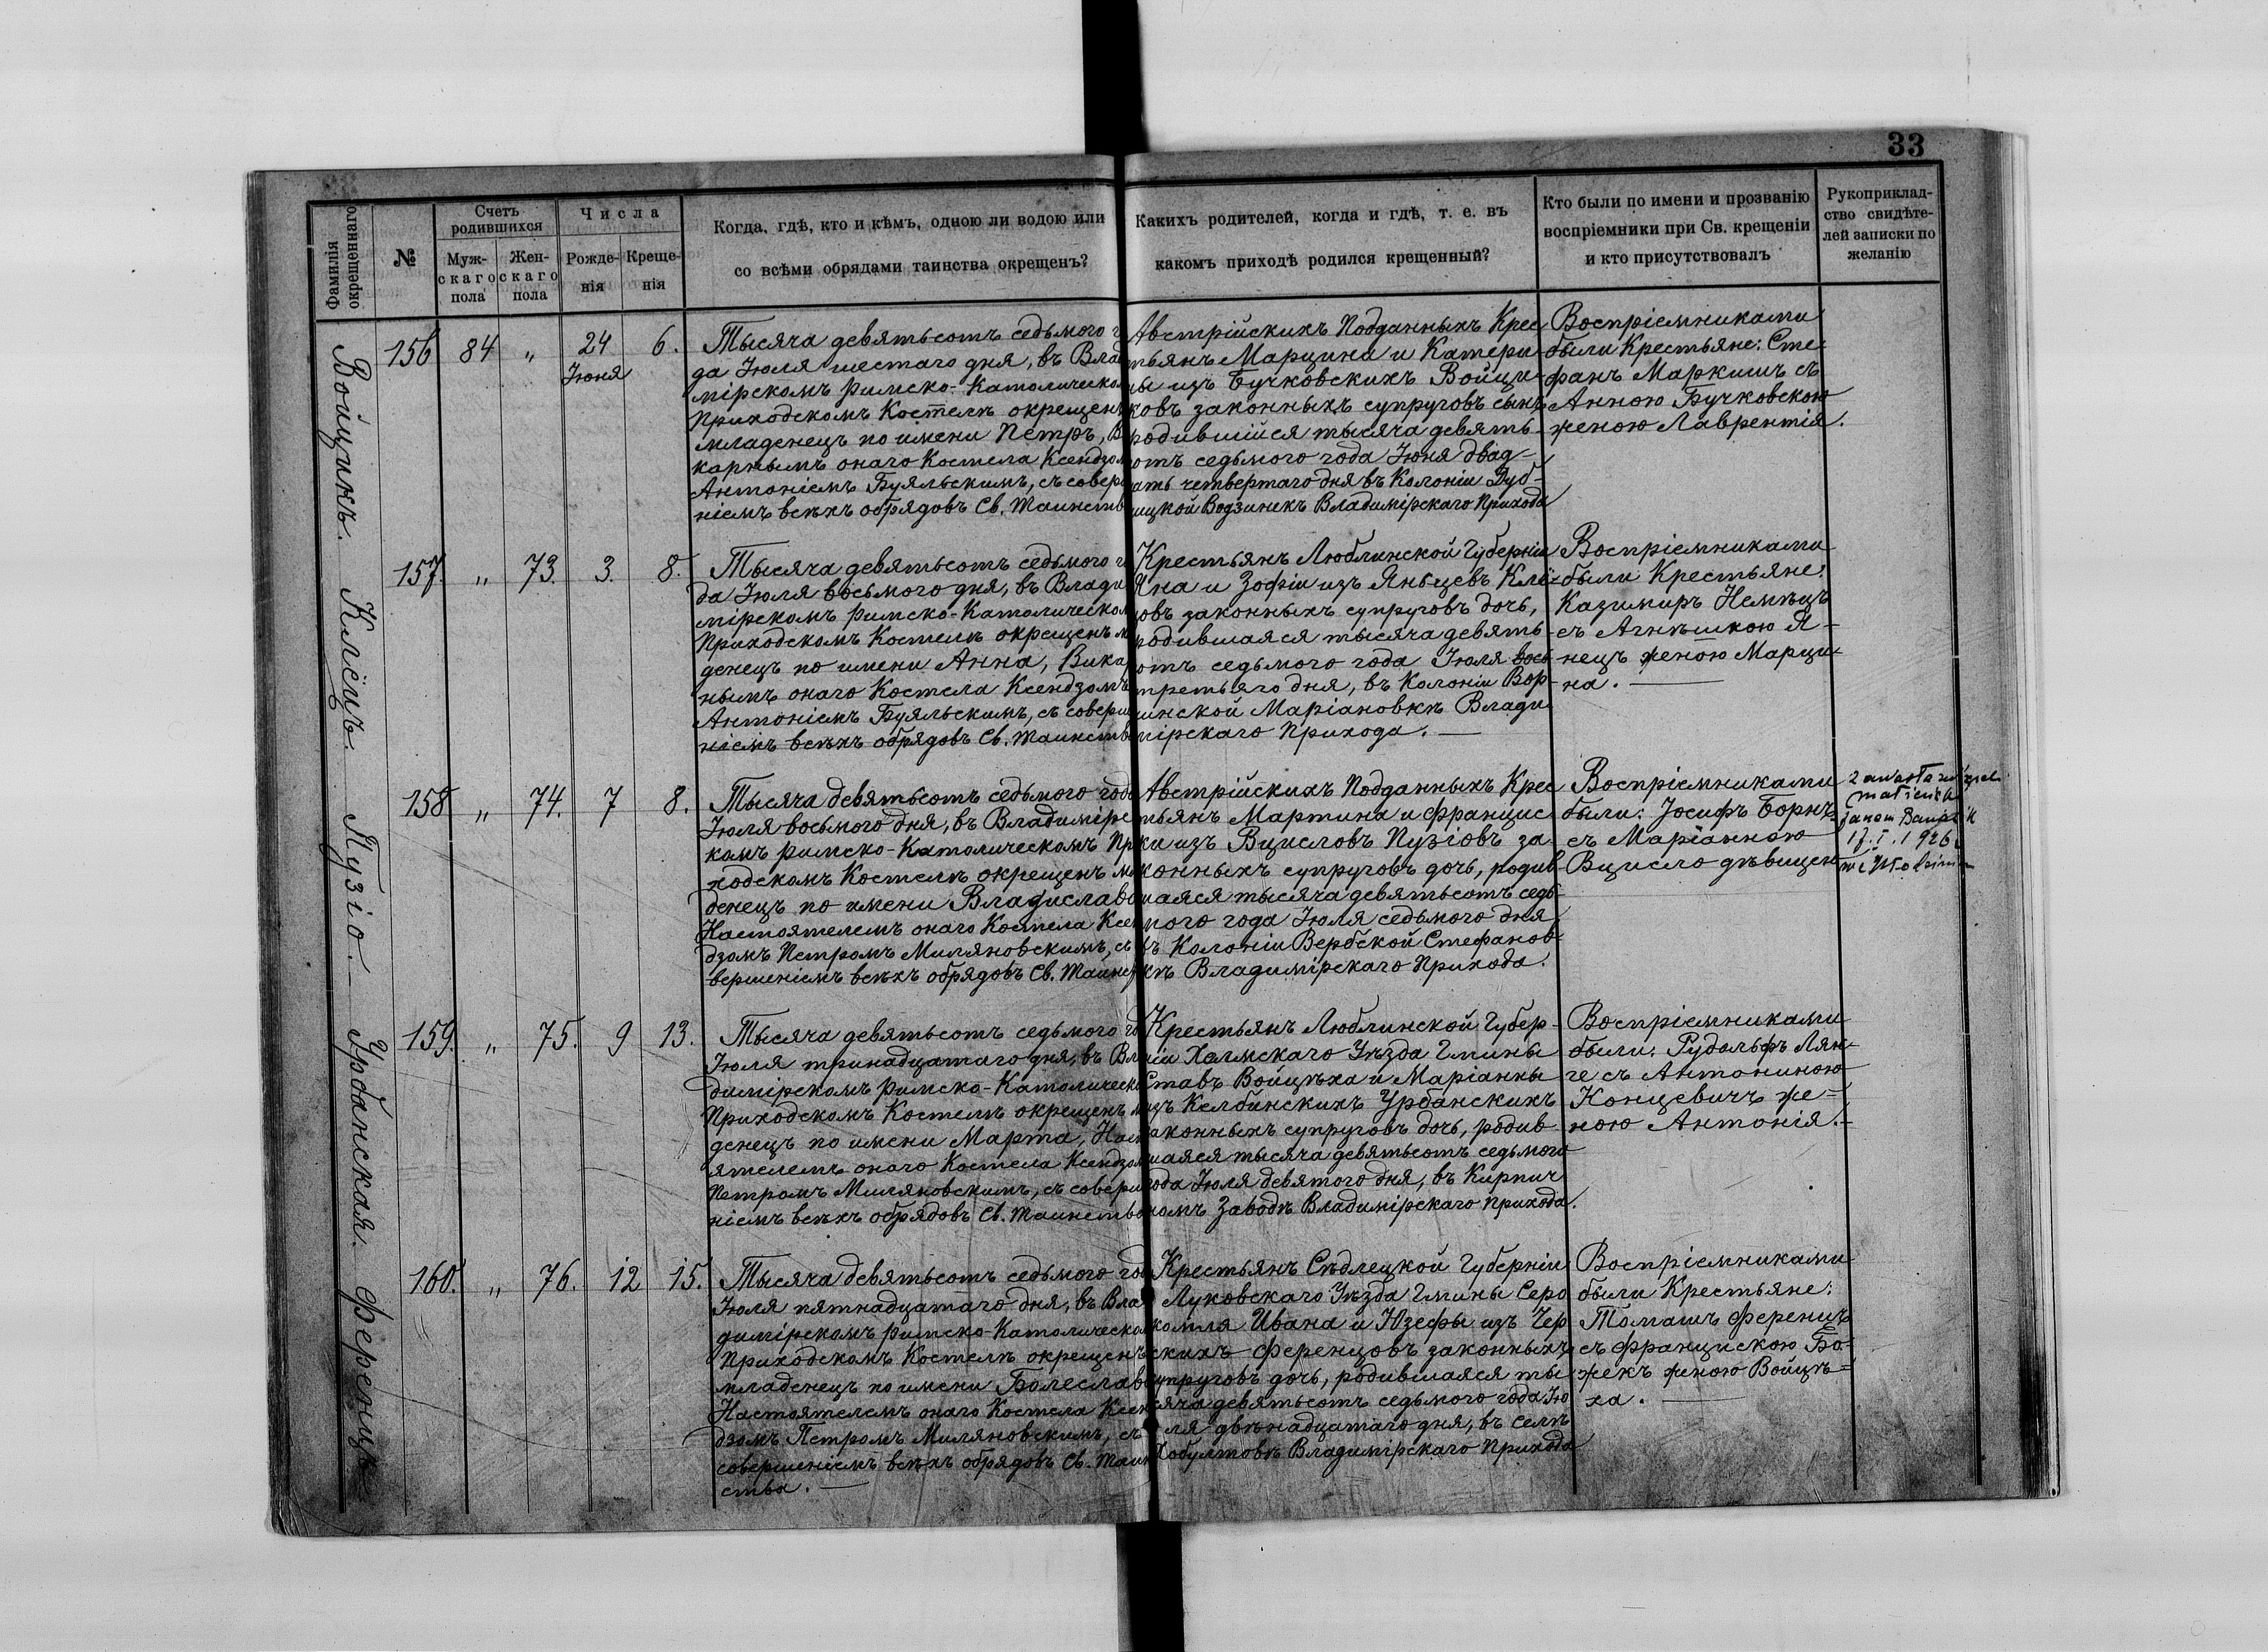 33
Фамилія окрещеннаго
№
Счетъ родившихся
Муж-скаго пола
Жен-скаго пола
Числа
Рожде-нія
Креще-нія
Когда, гдѣ, кто и кѣмъ, одною ли водою или
со всѣми обрядами таинства окрещенъ?
Какихъ родителей, когда и гдѣ, т. е. въ
какомъ приходѣ родился крещенный?
Кто были по имени и прозванію
воспріемники при Св. крещеніи
и кто присутствовалъ
Рукоприклад-
ство свидѣте-
лей записки по
желанію
Войцикъ.
156 84 „ 24 Іюня 6.
Тысяча девятьсотъ седьмого г
да Іюля шестаго дня, въ Влад
мірскомъ римско-Католическом
Приходскомъ Костелѣ окрещенъ
младенецъ по имени Петръ, В
карнымъ онаго Костела Ксендзом
Антоніемъ Буяльскимъ, съ совер
ніемъ всѣхъ обрядовъ Св. Таинств
Австрійскихъ Подданныхъ Крес
тьянъ Марцина и Катери
ны изъ Бучковскихъ Войци-
ковъ законныхъ супруговъ сынъ
родившійся тысяча девять-
отъ седьмого года Іюня двад-
ать четвертаго дня въ Колоніи Дуб-
ицкой Водзинекъ Владимірскаго Прихода
Воспріемниками
были Крестьяне: Сте-
фанъ Маркишъ съ
Анною Бучковскою
женою Лаврентія.
Клѣцъ.
157. „ 73. 3. 8.
Тысяча девятьсотъ седьмого г
да Іюля восьмого дня, въ Влади
мірскомъ римско-Католическом
Приходскомъ Костелѣ окрещенъ м
денецъ по имени Анна, Вика
нымъ онаго Костела Ксендзомъ
Антоніемъ Буяльскимъ, съ соверш
ніемъ всѣхъ обрядовъ Св. Таинств
Крестьянъ Люблинской Губерніи
Яна и Зофіи изъ Яньцевъ Клѣ-
цовъ законныхъ супруговъ дочь,
родившаяся тысяча девять-
отъ седьмого года Іюля вось
третьяго дня, въ Колоніи Вор-
чинской Маріановкѣ Влади
мірскаго Прихода.
Воспріемниками
были Крестьяне:
Казимиръ Немѣцъ
съ Агнѣшкою Я-
нецъ женою Марци-
на.
Пузіо.
158 „ 74. 7 8.
Тысяча девятьсотъ седьмого года
Іюля восьмого дня, въ Владимірс
комъ римско-Католическомъ При
ходскомъ Костелѣ окрещенъ мла
денецъ по имени Владислава
Настоятелемъ онаго Костела Ксен
дзомъ Петромъ Миляновскимъ, съ
вершеніемъ всѣхъ обрядовъ Св. Таинст
Австрійскихъ Подданныхъ Крес
тьянъ Мартина и Францис
ки изъ Вцисловъ Пузіовъ за
конныхъ супруговъ дочь, родив
шаяся тысяча девятьсотъ седь
мого года Іюля седьмого дня
въ Колоніи Вербской Стефанов-
кѣ Владимірскаго Прихода.
Воспріемниками
были: Іосифъ Борнъ
съ Маріанною
Вцисло дѣвицею
Zawarła związek
małżeński
17.I.1926
we Włodzim
Урбанская.
159. „ 75. 9 13.
Тысяча девятьсотъ седьмого го
Іюля тринадцатаго дня, въ Вла
димірскомъ римско-Католическо
Приходскомъ Костелѣ окрещенъ м
денецъ по имени Марта, Наст
ятелемъ онаго Костела Ксендзом
Петромъ Миляновскимъ, съ соверш
ніемъ всѣхъ обрядовъ Св. Таинства
Крестьянъ Люблинской Губер-
ніи Холмскаго Уѣзда Гмины
Ставъ Войцѣха и Маріанны
изъ Келбинскихъ Урбанскихъ
законныхъ супруговъ дочь, родив-
шаяся тысяча девятьсотъ седьмого
года Іюля девятого дня, въ Кирпич
номъ Заводѣ Владимірскаго прихода.
Воспріемниками
были: Рудольфъ Лян-
ге съ Антониною
Концевичъ же-
ною Антонія.
Ференцъ
160. „ 76. 12 15.
Тысяча девятьсотъ седьмого год
Іюля пятнадцатаго дня, въ Вла
димірскомъ римско-Католическом
Приходскомъ Костелѣ окрещенъ
младенецъ по имени Болеслав
Настоятелемъ онаго Костела Ксен
дзомъ Петромъ Миляновскимъ, съ
совершеніемъ всѣхъ обрядовъ Св. Таин
ства.
Крестьянъ Сѣдлецкой Губерніи
Луковскаго Уѣзда Гмины Серо
комля Ивана и Юзефы изъ Чер
скихъ Ференцовъ законныхъ
супруговъ дочь, родившаяся ты
сяча девятьсотъ седьмого года Ію
ля двѣнадцатаго дня, въ селѣ
Хобултовѣ Владимірскаго Прихода
Воспріемниками
были Крестьяне:
Томашъ Ференцъ
съ Францискою Бо-
жекъ женою Войцѣ-
ха.